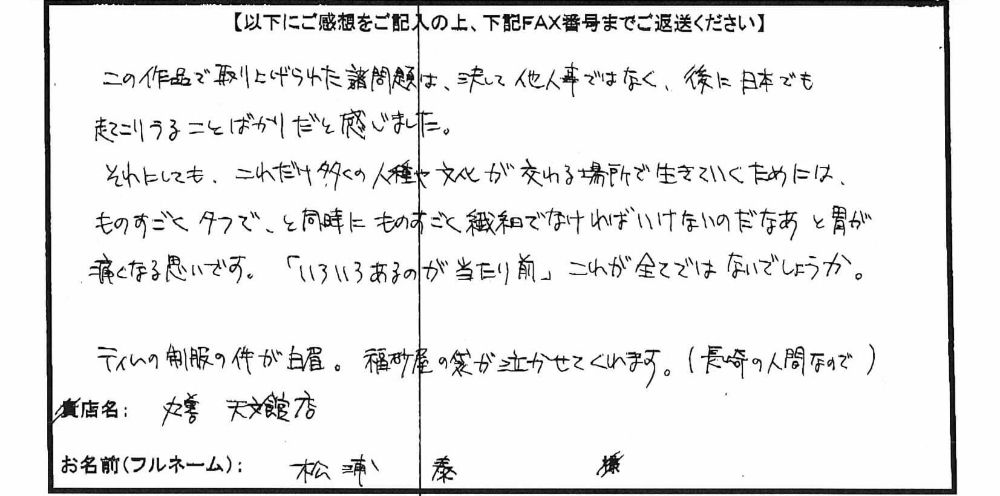 【以下にご感想をご記入の上、下記FAX番号までご返送ください】
この作品で取り上げられた諸問題は、決して他人事ではなく、後に日本でも
起こりうることばかりだと感じました。
それにしても、これだけ多くの人種や文化が交わる場所で生きていくためには、
ものすごくタフで、と同時にものすごく繊細でなければいけないのだなあと胃が
痛くなる思いです。「いろいろあるのが当たり前」これが全てではないでしょうか。
ティムの制服の件が白眉。福砂屋の袋が泣かせてくれます。(長崎の人間なので)
貴店名: 丸善 天文館店
お名前(フルネーム): 松浦 泰 様